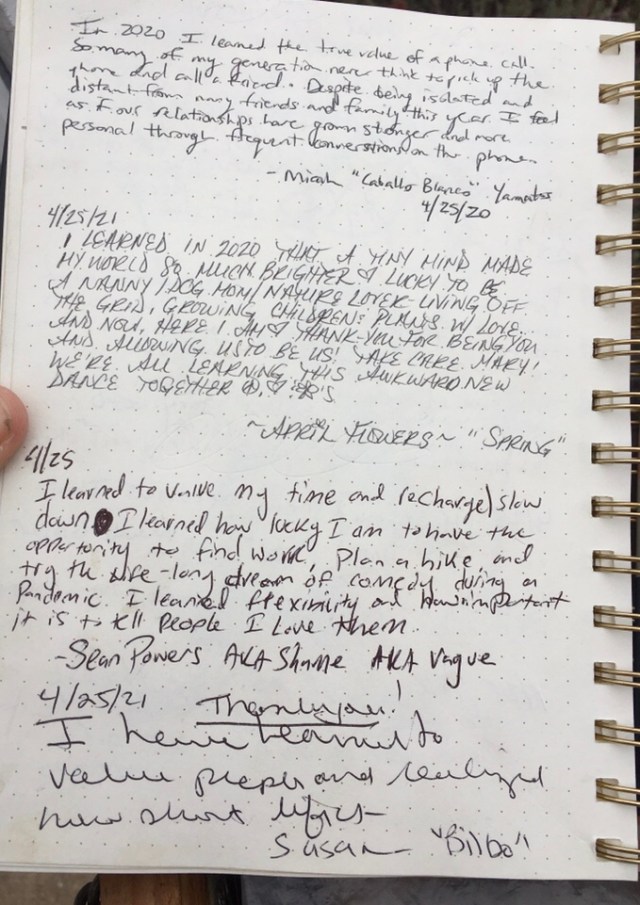 In 2020 I learned the true value of a phone call.
So many of my generation never think to pick up the
phone and call a friend. Despite being isolated and
distant from many friends and family this year I feel
as if our relationships have grown stronger and more
personal through frequent conversations on the phone.
- Micah "Caballo Blanco"
4/25/20
4/25/21
I LEARNED IN 2020 THAT A TINY MIND MADE
MY WORLD SO MUCH BRIGHTER ♡ LUCKY TO BE
A NANNY/DOG MOM/NATURE LOVER LIVING OFF
THE GRID, GROWING CHILDREN & PLANTS W/ LOVE...
AND NOW, HERE I AM ♡ THANK-YOU FOR BEING YOU
AND ALLOWING US TO BE US! TAKE CARE. MARY!
WE'RE ALL LEARNING THIS AWKWARD NEW
DANCE TOGETHER
~APRIL FLOWERS~ "SPRING"
4/25
I learned to value my time and recharge/slow
down I learned how lucky I am to have the
opportunity to find work, plan a hike, and
try the life-long dream of comedy during a
Pandemic. I learned flexibility and how important
it is to tell people I Love them.
-Sean Powers AKA Shame AKA Vague
4/25/21 Thank you!
I have learned to
value people and realized
how short life is-
Susan "Bilbo"